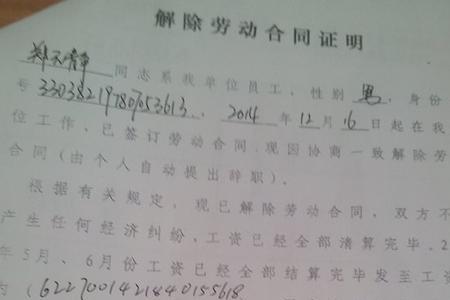 解除劳动合同证明
同志系我单位员工，性别 男，身份
号 2014 年 12 月 16 日起在我
位工作，已签订劳动合同，现因协商一致解除劳
合同（由个人自动提出辞职）。
根据有关规定，现已解除劳动合同，双方不
产生任何经济纠纷，工资已经全部清算完毕，2
年5月、6月份工资已经全部结算完毕发至工资
为（6227001421840155618